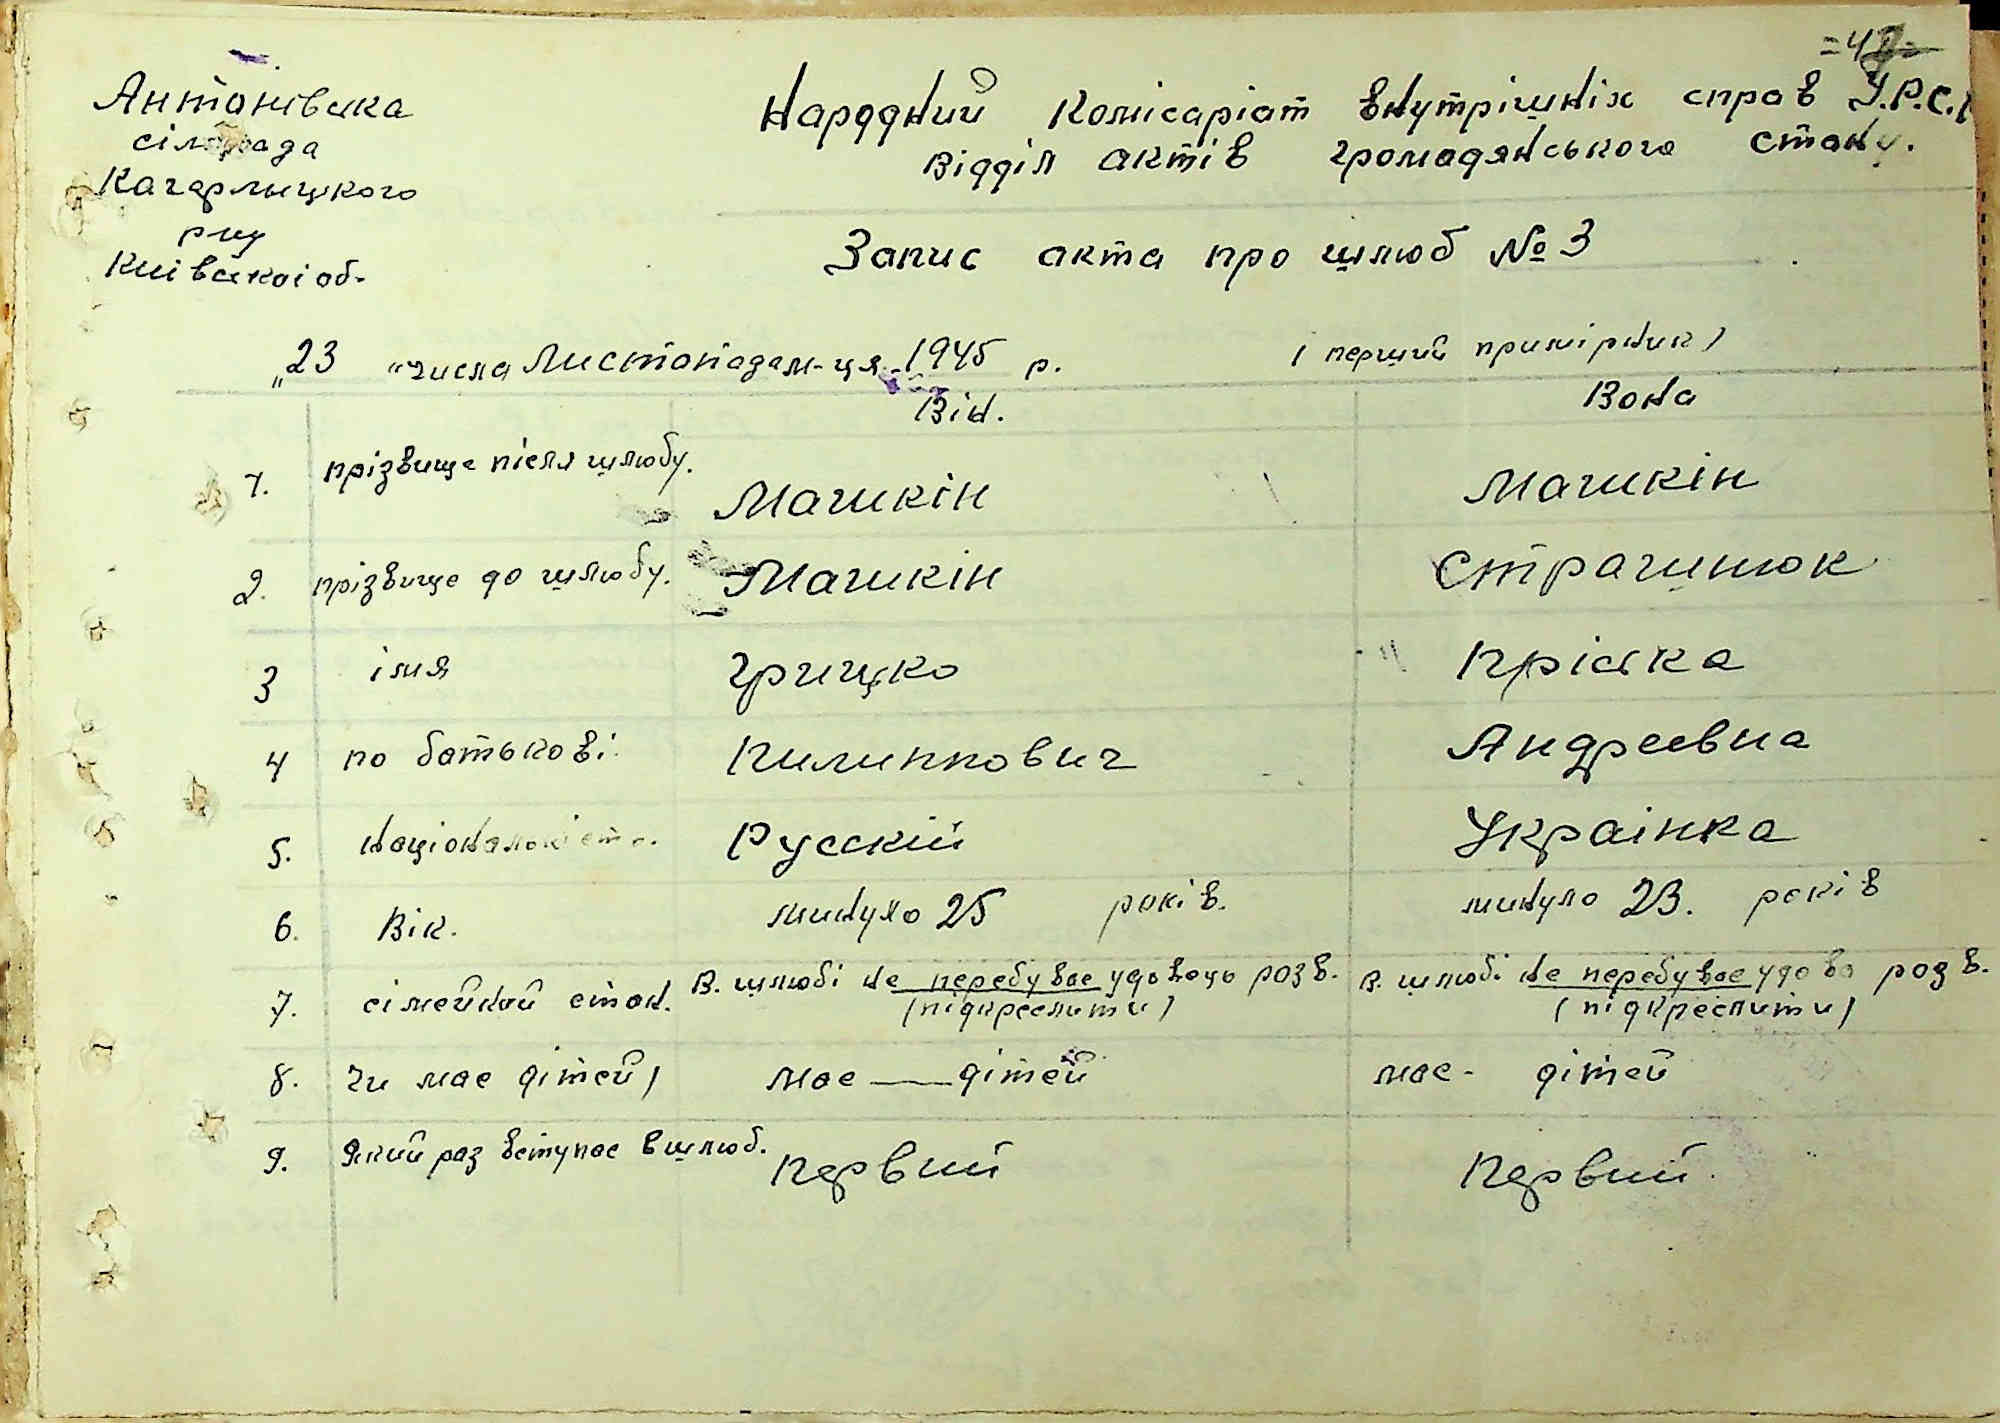 Антонівська
сільрада
Кагарлицького
р-ну
Київської об.
=42=
Народний Комісаріат внутрішніх справ У.Р.С.Р
Відділ актів громадянського стану.
Запис акта про шлюб № 3
„23 “числа Листопадам-ця 1945 р. (перший примірник)
Він. Вона
1. прізвище після шлюбу. Машкін Машкін
2. прізвище до шлюбу. Машкін Стращнюк
3 імя Грицько Пріська
4 по батькові. Пилиппович Андреевна
5. національність. Русскій Українка
6. Вік. минуло 25 років. минуло 23. років
7. сімейний стан. В. шлюбі не перебувае удовець розв. В. шлюбі не перебувае удова розв.
(підкреслити) (підкреслити)
8. Чи мае дітей) мае — дітей мае - дітей
9. Який раз вступае в шлюб. Первий Первий.